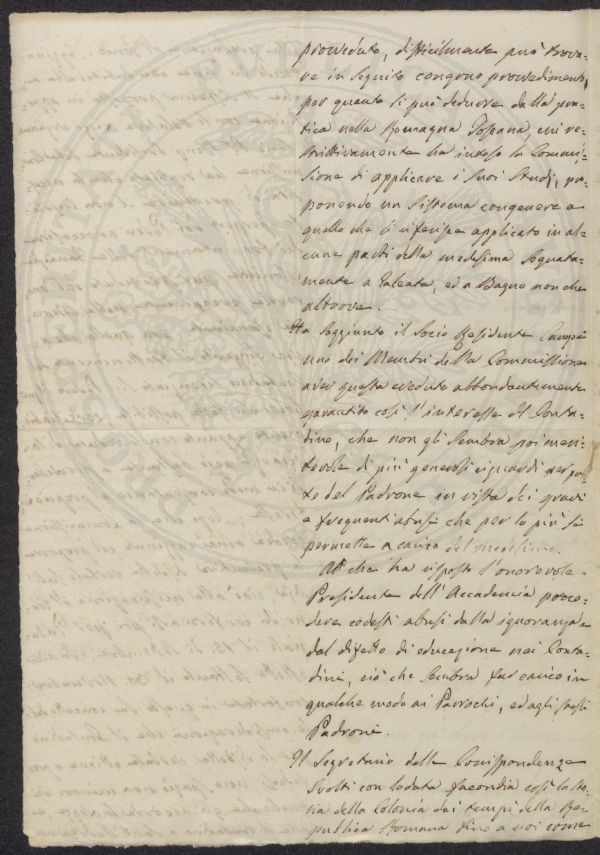 proveduto, difficilmente può trova=
re in seguito congruo provvedimento,
per quanto si può dedurre dalla pra=
tica nella Romagna Toscana, cui re=
strittivamente ha inteso la Commis=
sione di applicare i suoi Studj, pro=
ponendo un sistema congenere a
quello che si riferisce applicato in al=
cune parti della medesima segnata=
mente a Galeata, ed a Bagno non che
altrove.
Ha soggiunto il Socio Residente
uno dei Membri della Commissione
aver questa creduto abbondantemente
garantito così l'interesse del Conta=
dino, che non gli sembra poi meri=
tevole di più generosi riguardi per par=
te del Padrone in vista dei gravi
e frequenti abusi che per lo più si
permette a carico del medesimo.
Al che ha risposto l'onorevole
Presidente dell'Accademia proce=
dere codesti abusi dalla ignoranza e
dal difetto di educazione nei Conta=
dini, ciò che sembra far carico in
qualche modo ai Parrochi, ed agli stessi
Padroni.
Il Segretario delle Corrispondenze
svolti con lodata facondia così la sto=
ria della Colonia dai tempi della Re=
pubblica Romana fino a noi come